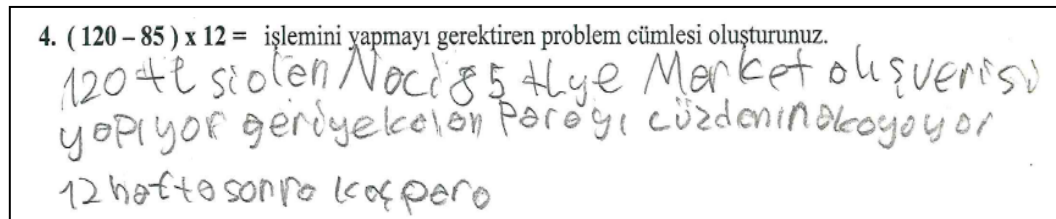 4. ( 120 – 85 ) x 12 = işlemini yapmayı gerektiren problem cümlesi oluşturunuz.
120 tl si olan Naci 85 tlye Market alışverisi
yapıyor geriye kalan Parayı cüzdanına koyuyor
12 hafta sonra kaç para